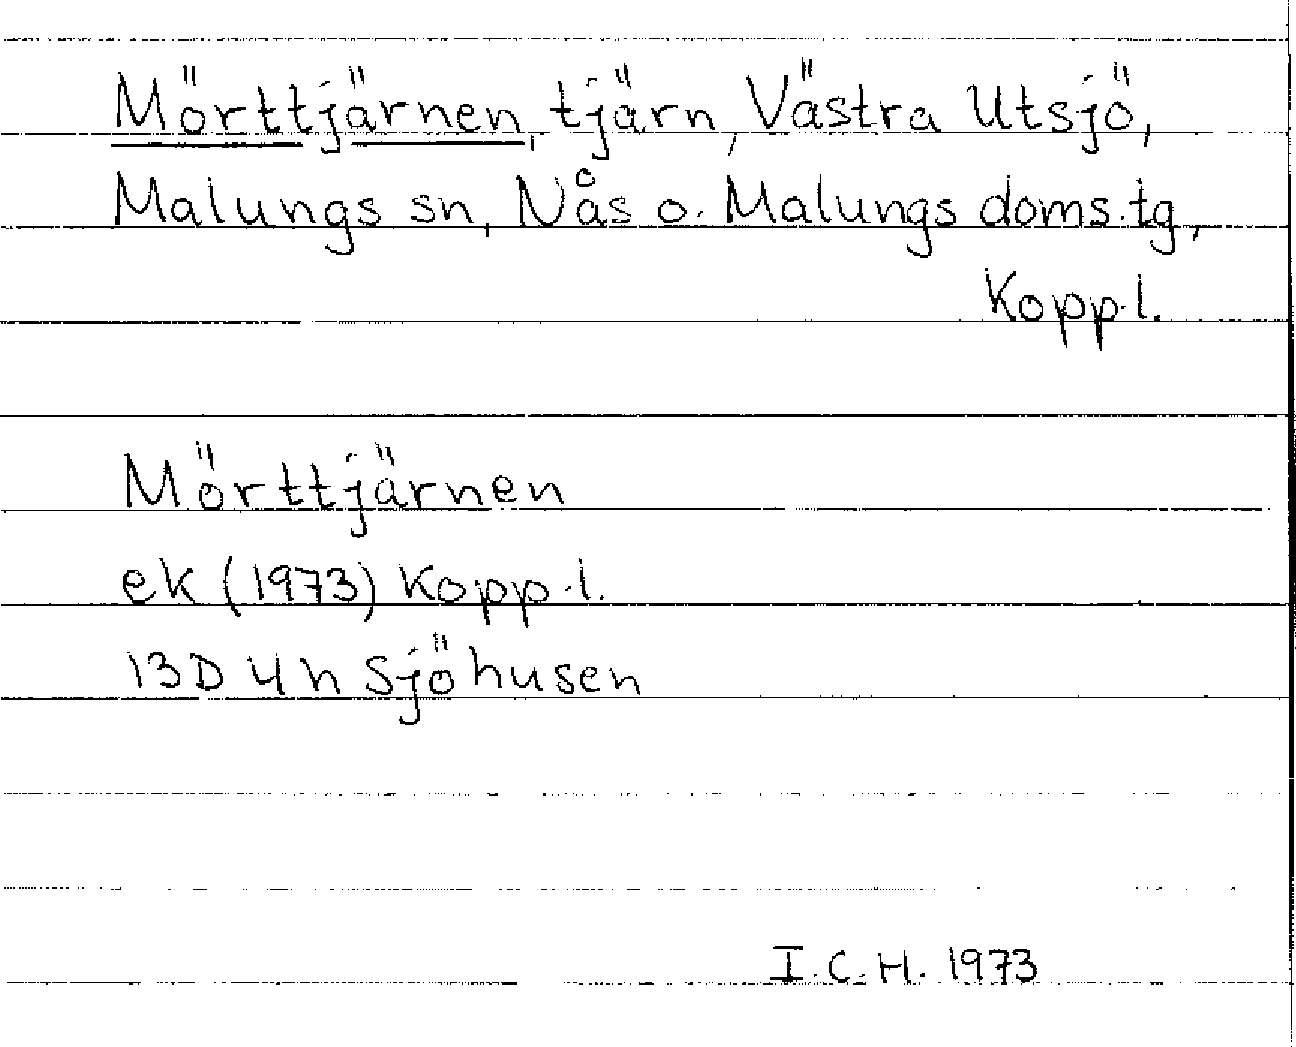 Mörttjärnen, tjärn, Västra Utsjö,
Malungs sn, Nås o. Malungs doms.tg,
Kopp.l.
Mörttjärnen
ek (1973) Kopp.l.
13D 4h Sjöhusen
I.C.H. 1973